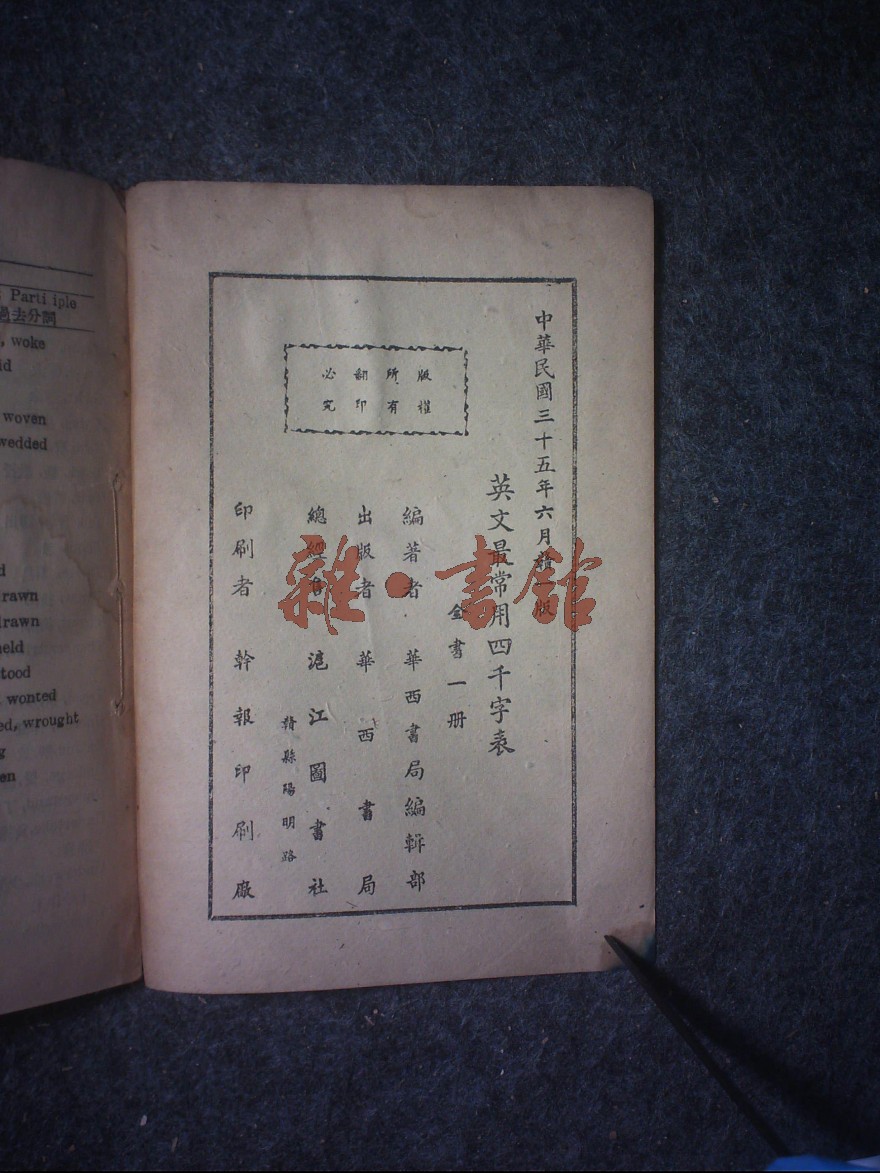 中華民國三十五年六月贛一版
英文最常用四千字表
全書一册
版權
所有
翻印
必究
編著者 華西書局編輯部
出版者 華西書局
總經售 滬江圖書社
贛縣陽明路
印刷者 幹報印刷廠
雜·書館
Parti iple
過去分詞
, woke
woven
wedded
rawn
drawn
held
tood
wonted
ed, wrought
en